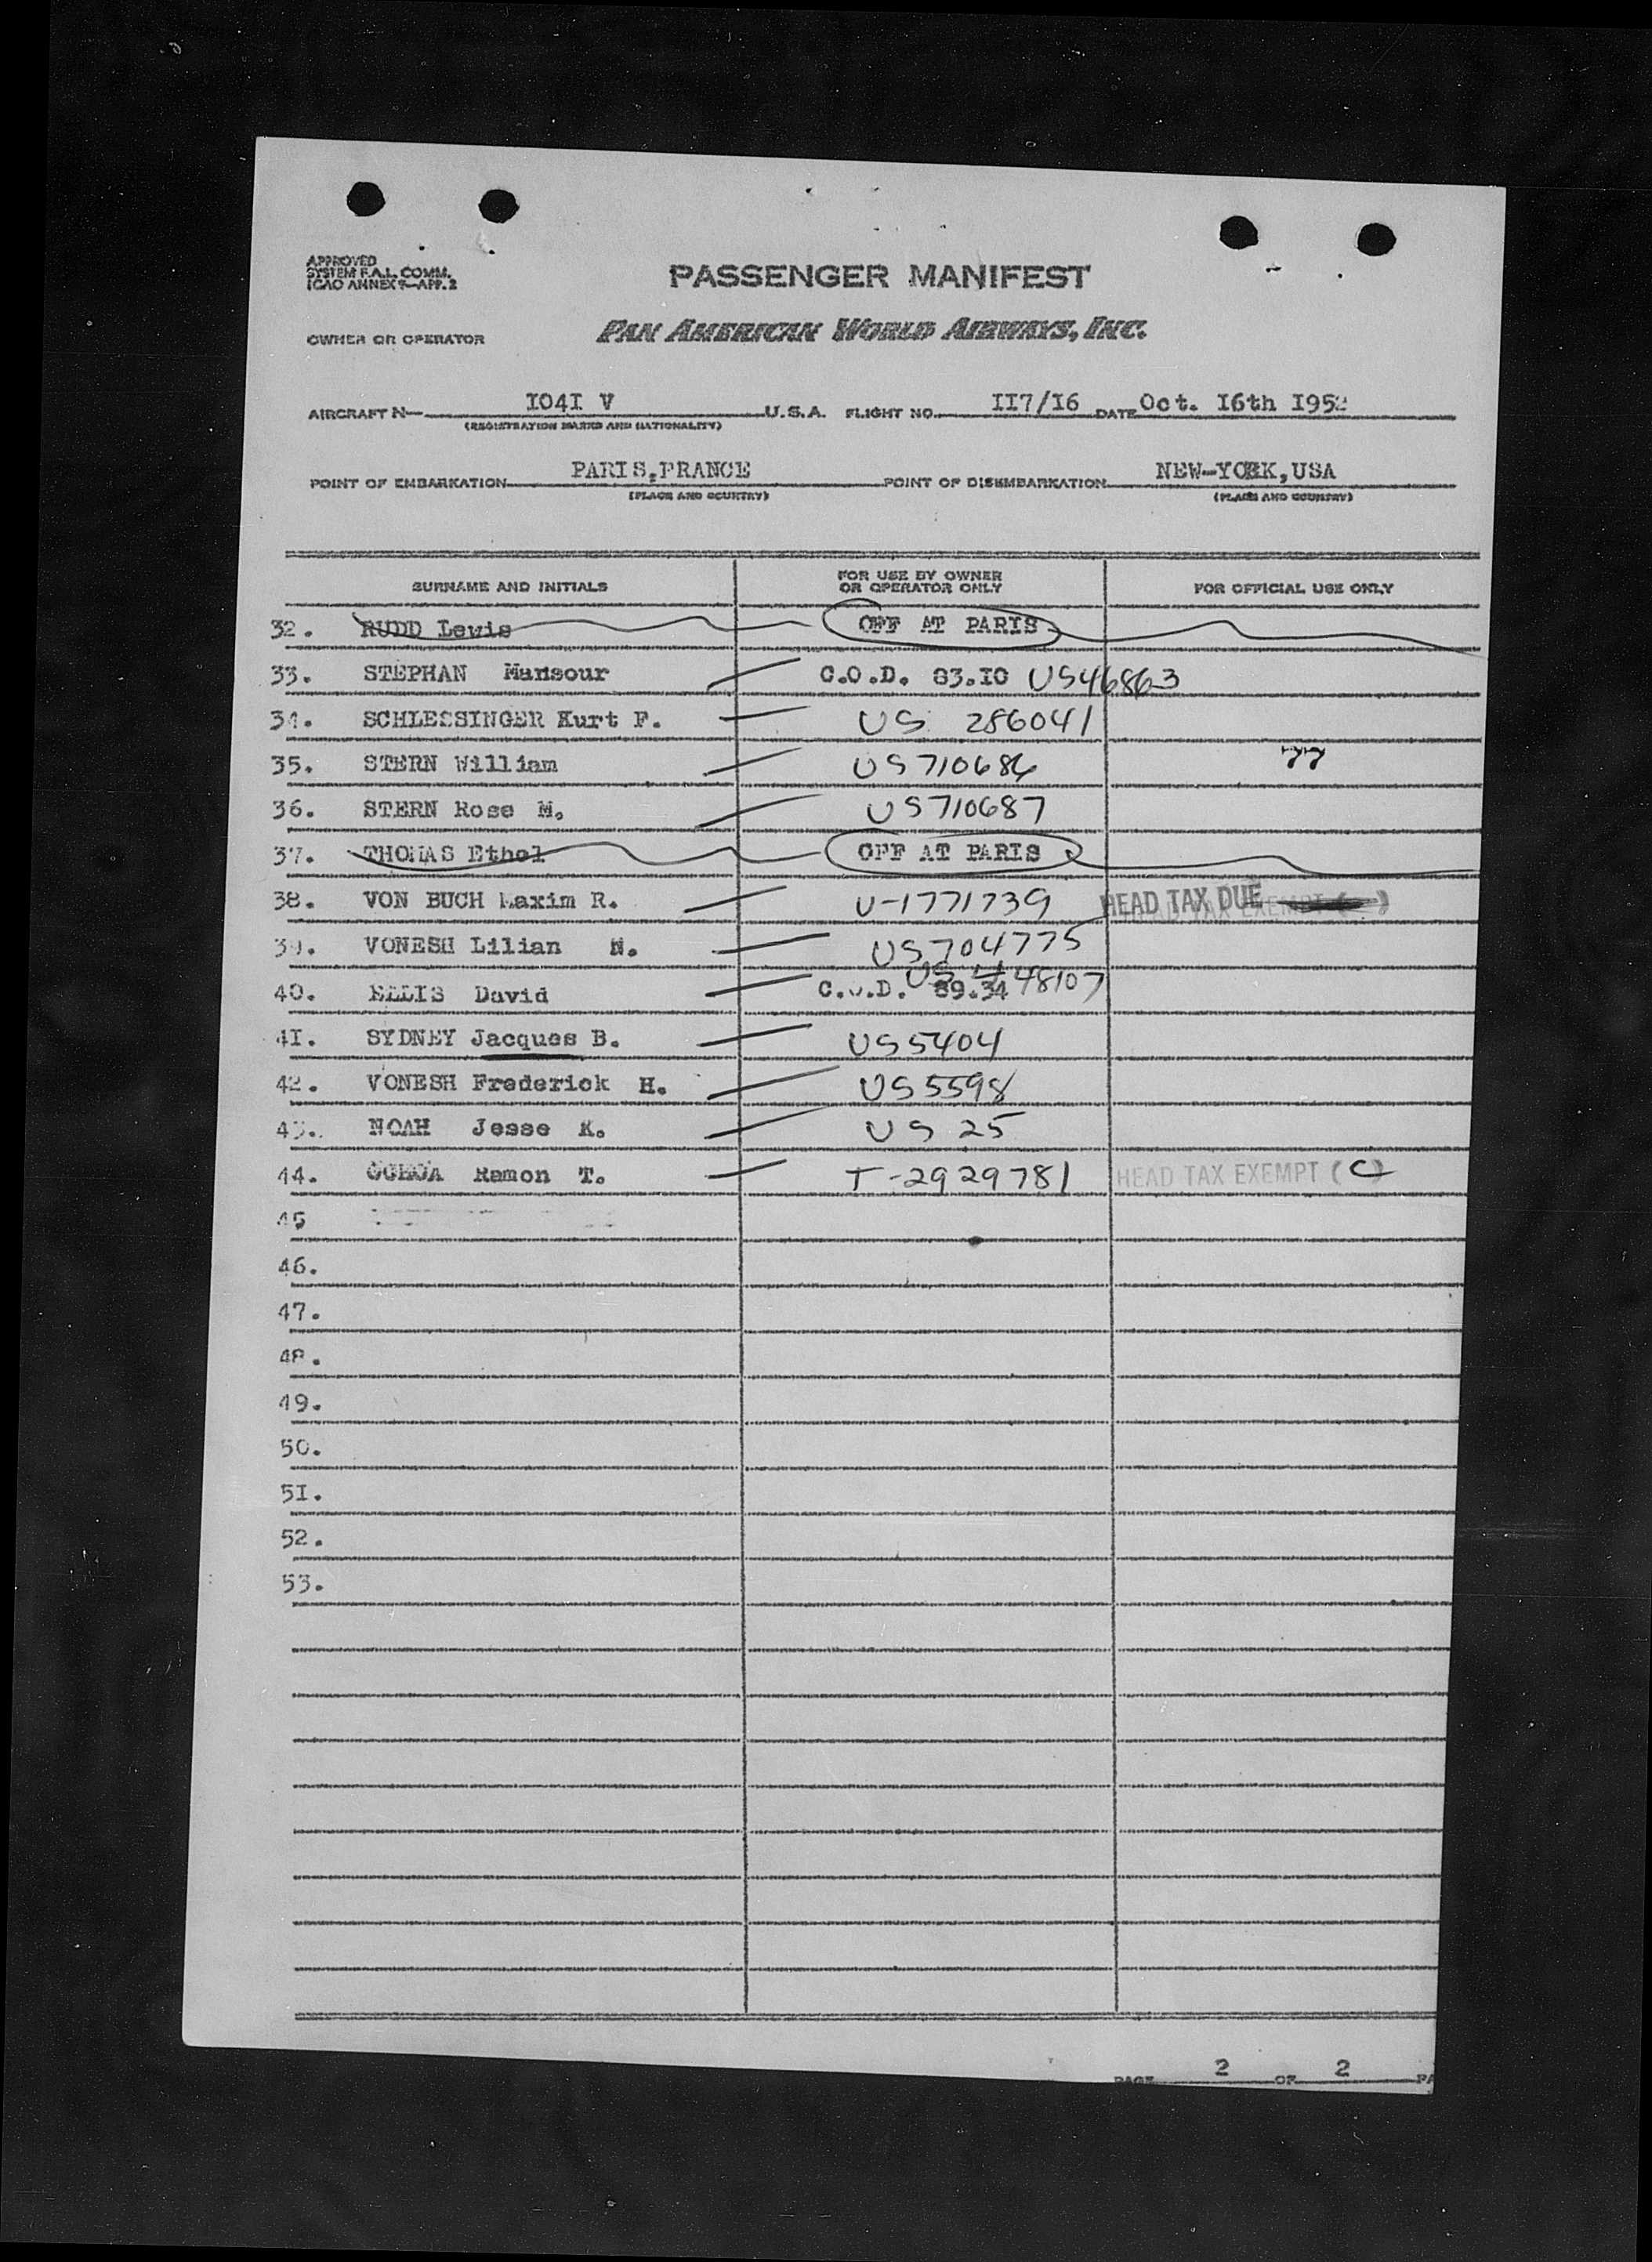 APPROVED
SYSTEM F.A.L. COMM.
ICAO ANNEX 9—APP. 2
PASSENGER MANIFEST
OWNER OR OPERATOR PAN AMERICAN WORLD AIRWAYS, INC.
AIRCRAFT N— I04I V U.S.A. FLIGHT NO. II7/I6 DATE Oct. I6th I952
(REGISTRATION MARKS AND NATIONALITY)
POINT OF EMBARKATION PARIS,FRANCE POINT OF DISEMBARKATION NEW-YORK,USA
(PLACE AND COUNTRY) (PLACE AND COUNTRY)
SURNAME AND INITIALS FOR USE BY OWNER OR OPERATOR ONLY FOR OFFICIAL USE ONLY
32. RUDD Lewis OFF AT PARIS
33. STEPHAN Mansour C.O.D. 83.I0 US46863
34. SCHLESSINGER Kurt F. US 286041
35. STERN William US710686
36. STERN Rose M. US710687
37. THOMAS Ethel OFF AT PARIS
38. VON BUCH Maxim R. U-1771739 HEAD TAX DUE
39. VONESH Lilian N. US704775
40. ELLIS David C.O.D. 89.34 US 48107
4I. SYDNEY Jacques B. US5404
42. VONESH Frederick H. US5598
43. NOAH Jesse K. US 25
44. OCHOA Ramon T. T-2929781 HEAD TAX EXEMPT (C)
45
46.
47.
48.
49.
50.
5I.
52.
53.
PAGE 2 OF 2